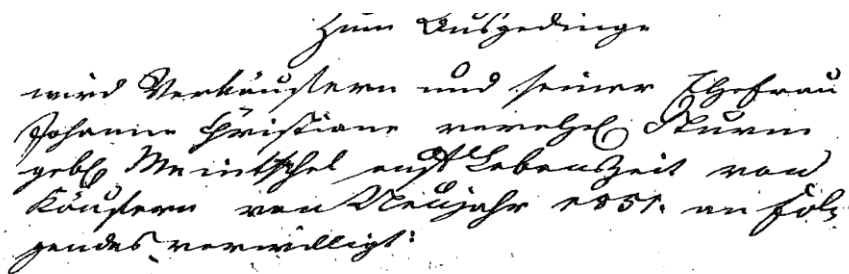 Zum Ausgedinge
wird Verkäufern und seiner Ehefrau
Johanne Christiane verehel. Sturm
geb. Meintschel auf Lebenszeit von
Käufern von Neujahr 1851. an fol-
gendes verwilligt: